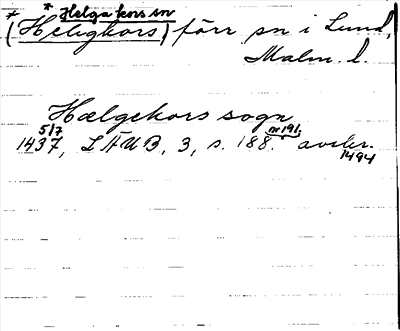 * * Helga kors sn
(Heligkors) förr sn i Lund,
Malm. l.
Hælgekors sogn
5/7 nr 191.
1437, LÄUB, 3, s. 188. avskr.
1494